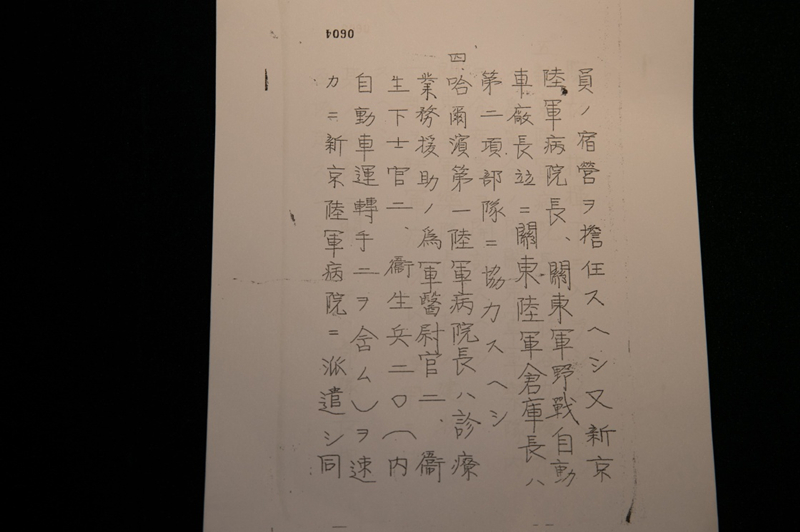 員ノ宿營ヲ擔任スヘシ又新京
陸軍病院長、關東軍野戰自動
車廠長竝ニ關東陸軍倉庫長ハ
第二項部隊ニ協力スヘシ
四、哈爾濱第一陸軍病院長ハ診療
業務援助ノ爲軍醫尉官二、衞
生下士官二、衞生兵二〇（內
自動車運轉手二ヲ含ム）ヲ速
カニ新京陸軍病院ニ派遣シ同
0604